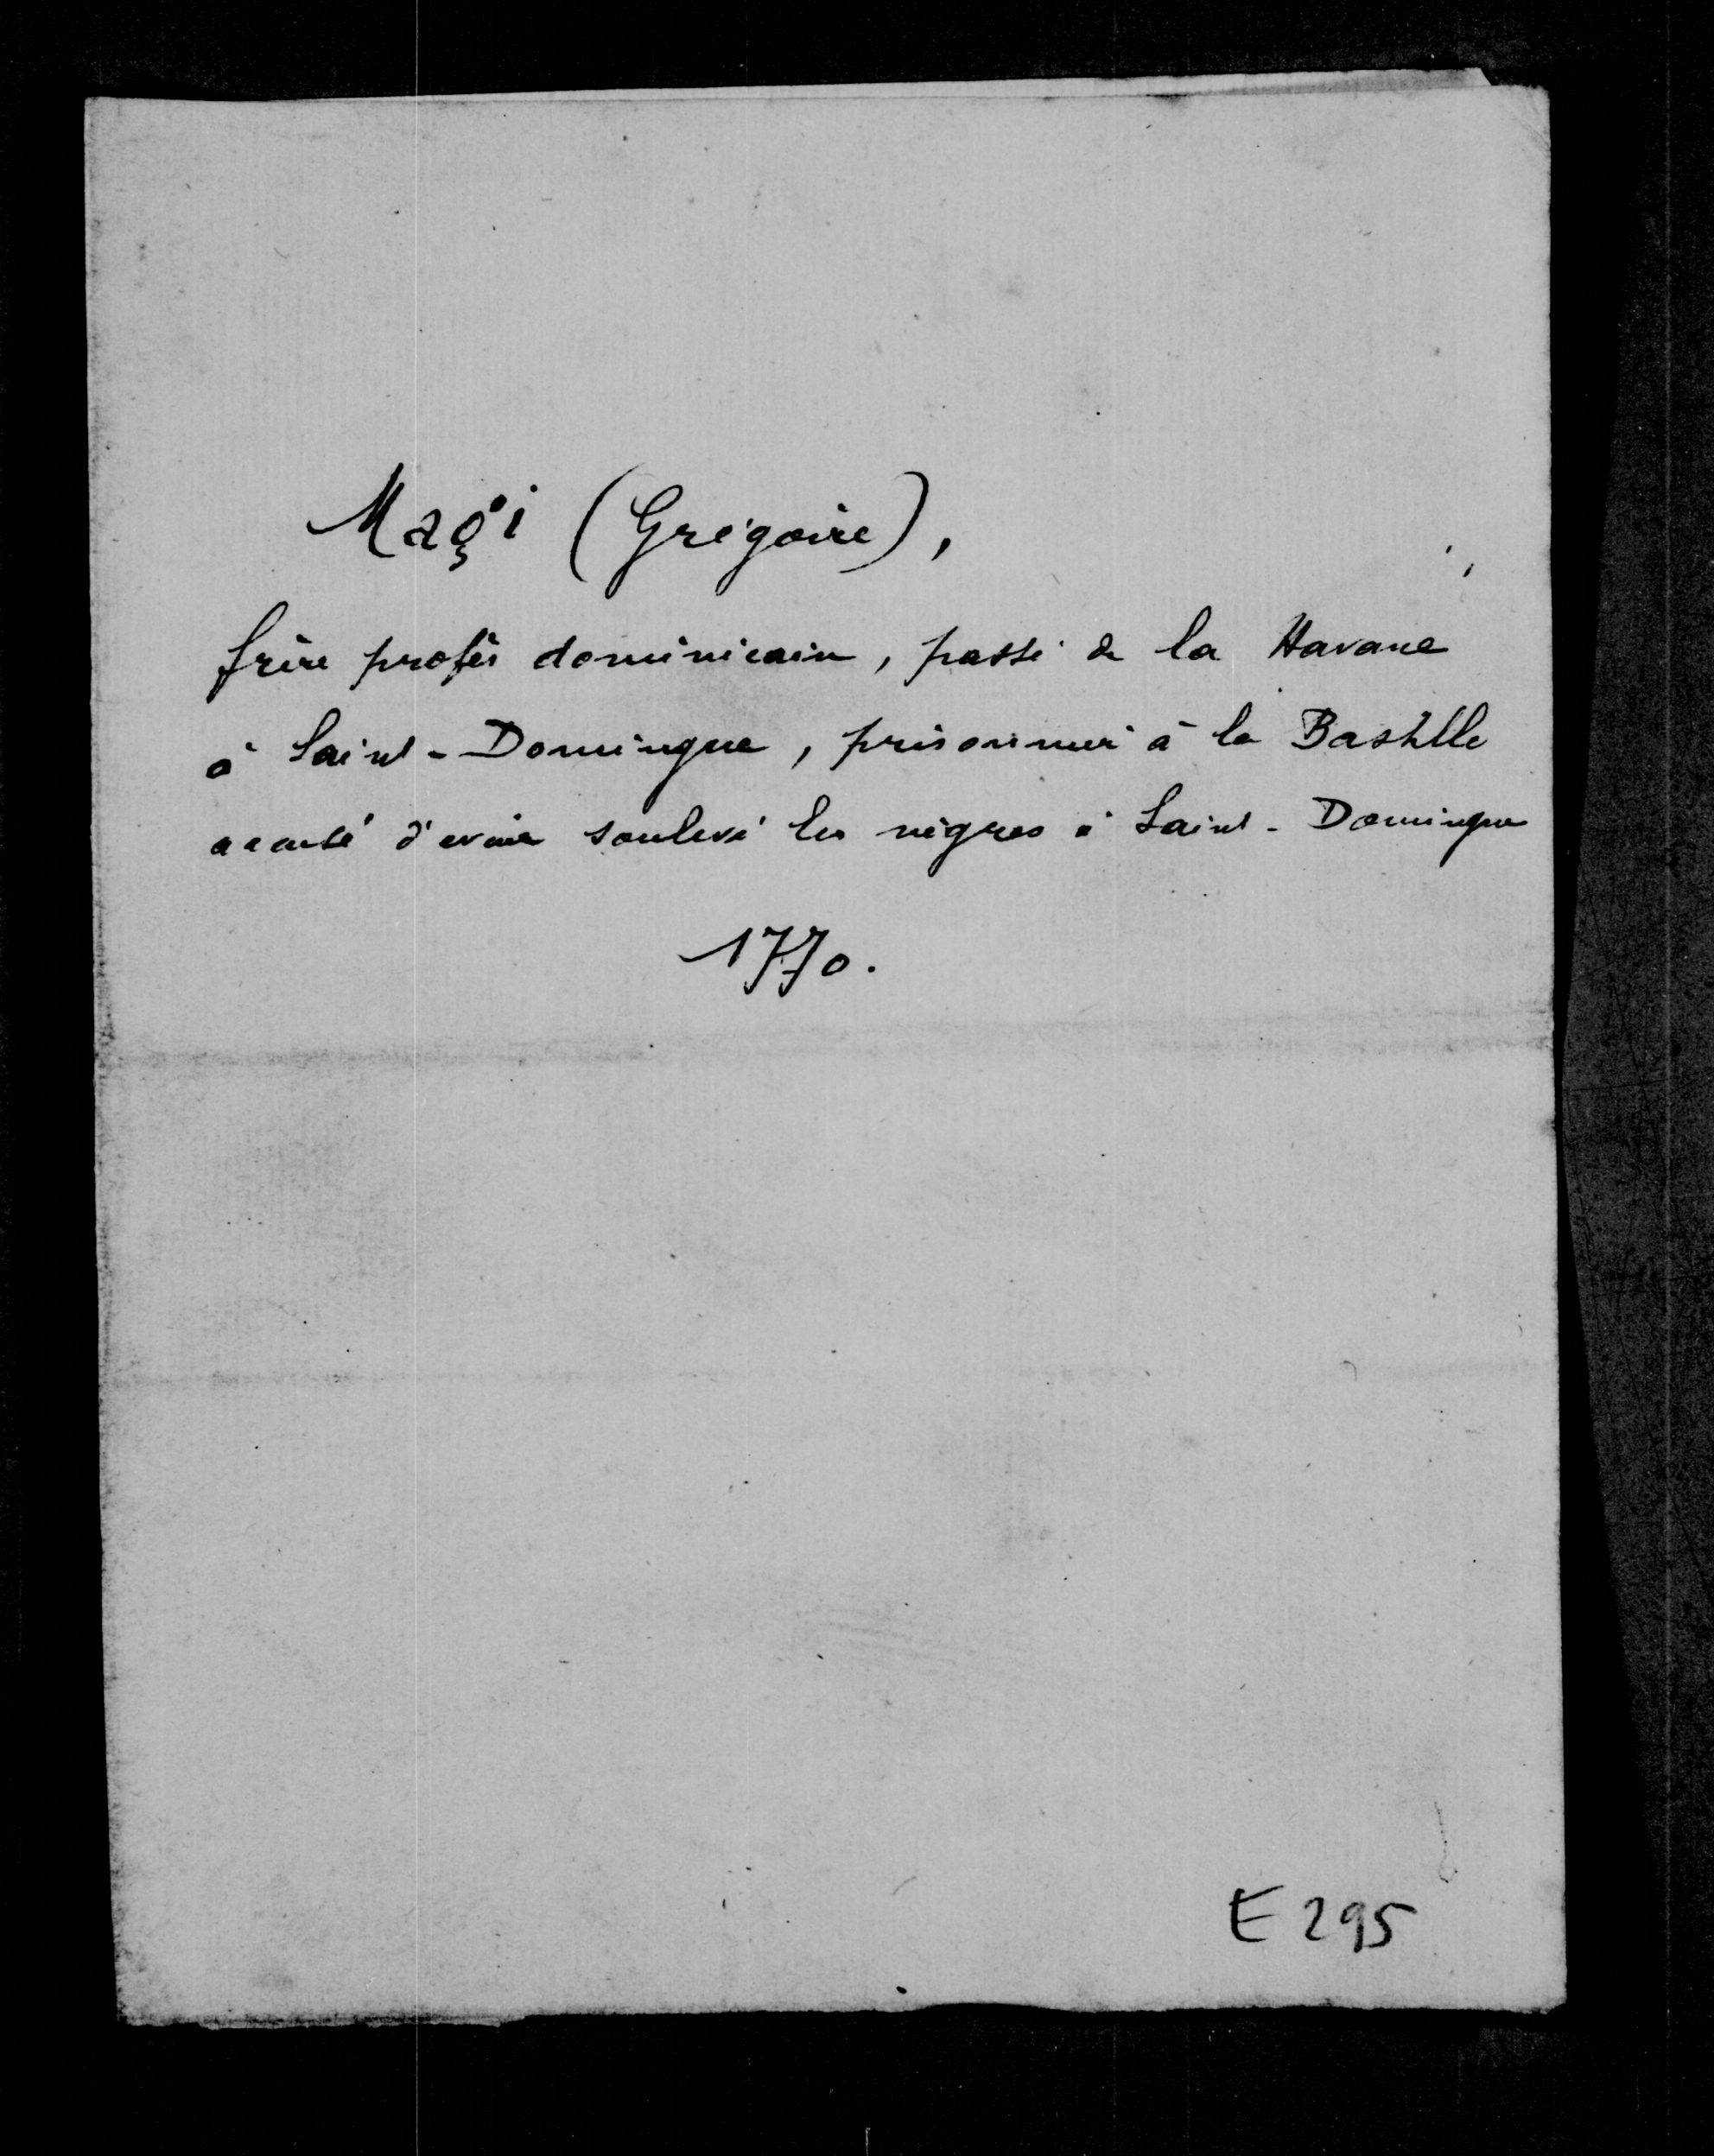 Magi (Grégoire),
frère profès dominicain, passé de la Havane
à Saint-Domingue, prisonnier à la Bastille
accusé d'avoir soulevé les nègres à Saint-Domingue
1770.
E 295